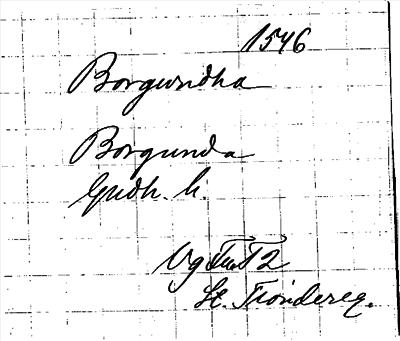 1546
Borgundha
Borgunda
Gudh. h.
Vg
12
St. Tiondereg.